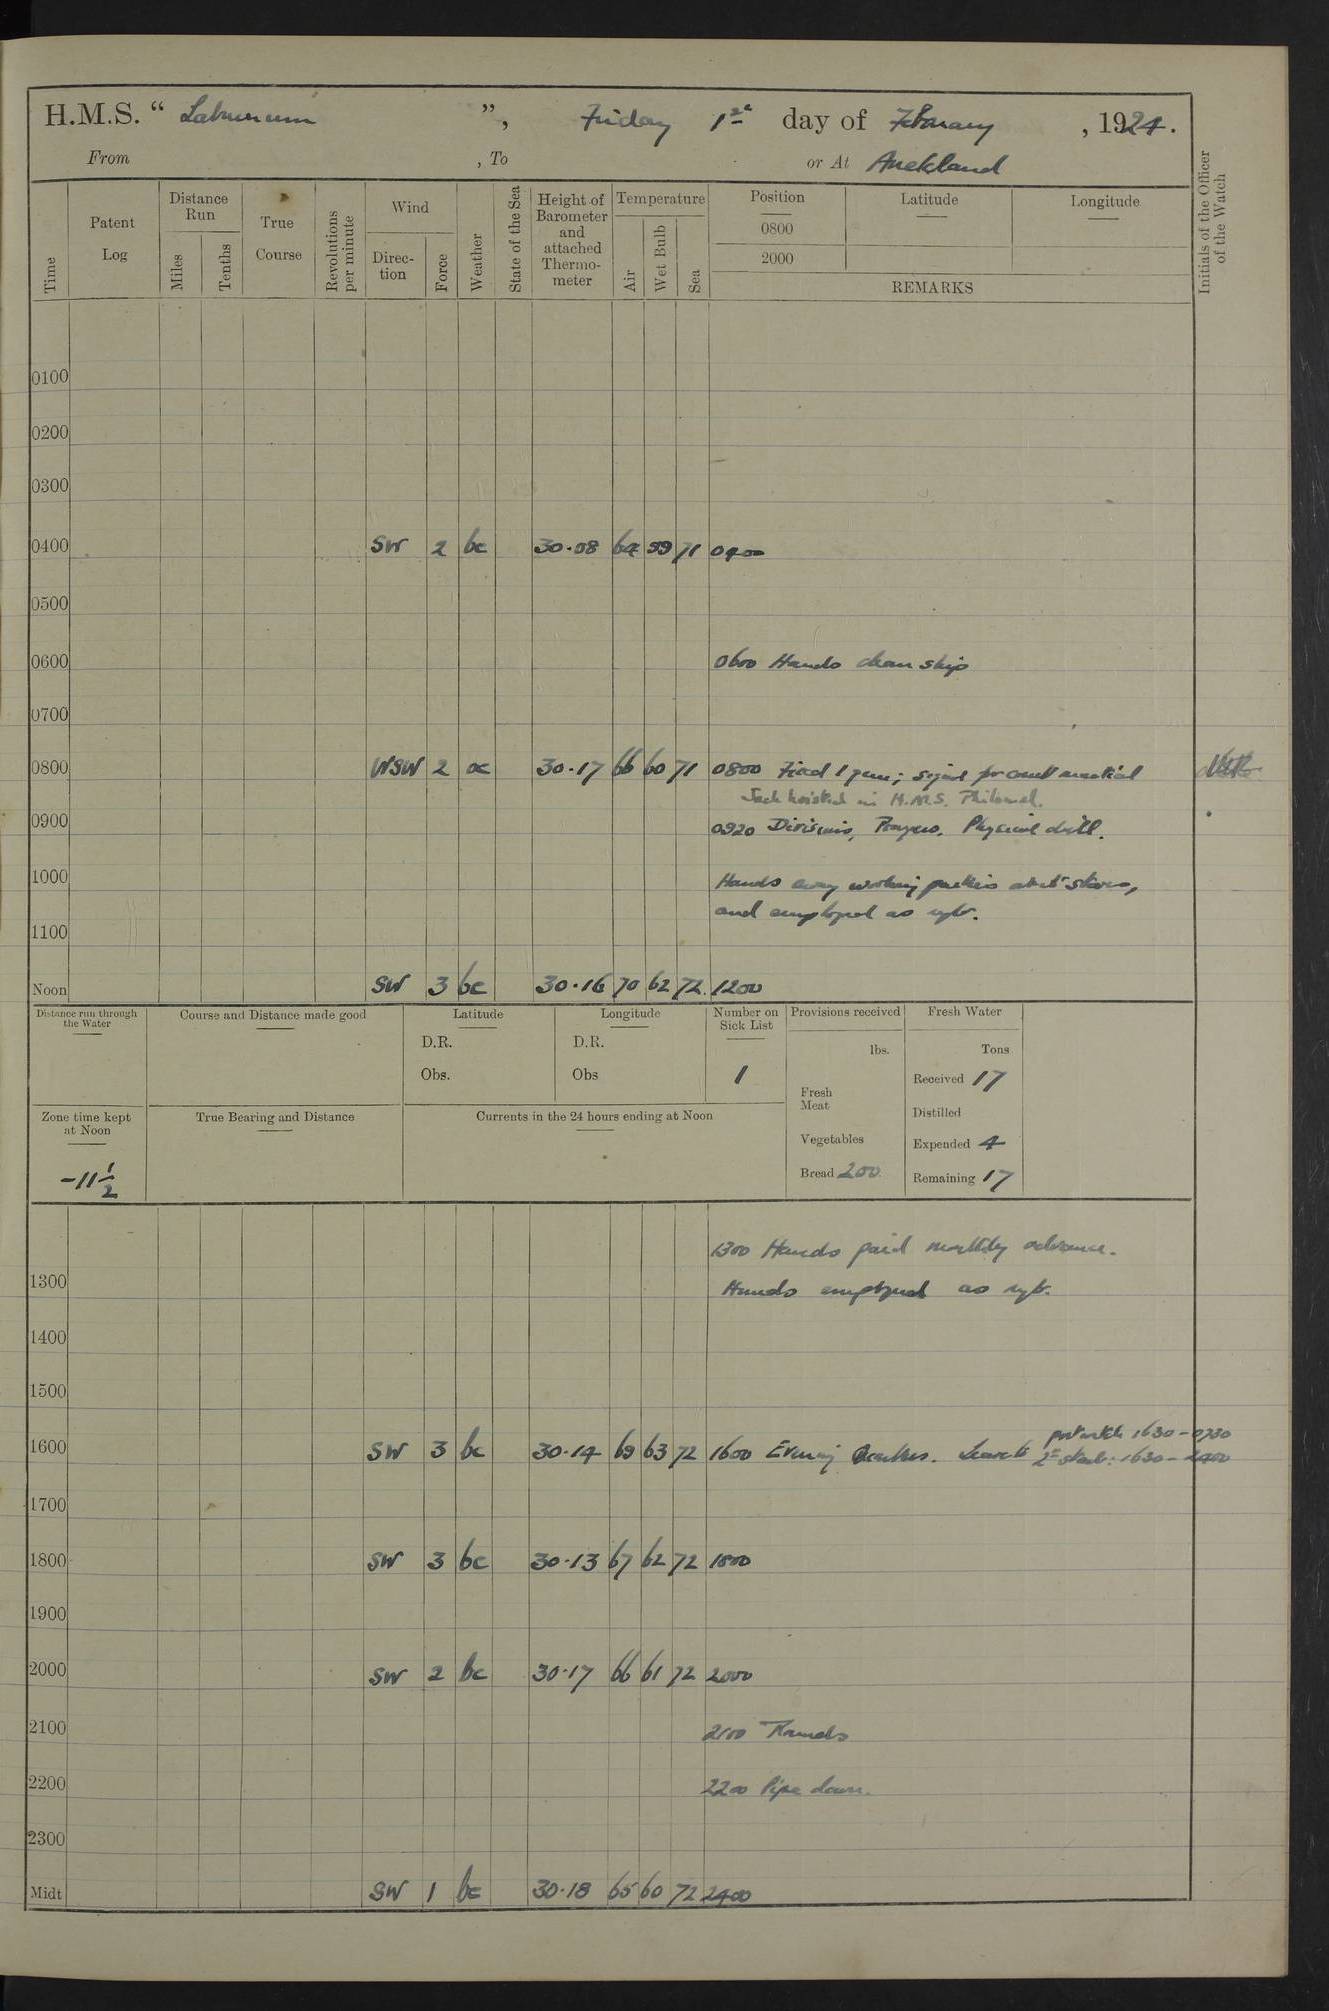 H.M.S. “ Laburnum ”, Friday 1st day of February , 1924.
From , To or At Auckland
Time
Patent Log
Distance Run
Miles
Tenths
True Course
Revolutions per minute
Wind
Direc-tion
Force
Weather
State of the Sea
Height of Barometer and attached Thermo-meter
Temperature
Air
Wet Bulb
Sea
Position
0800
2000
Latitude
Longitude
REMARKS
Initials of the Officer of the Watch
0100
0200
0300
0400 SW 2 bc 30·08 64 59 71 0400
0500
0600 0600 Hands clean ship
0700
0800 WSW 2 oc 30·17 66 60 71 0800 Fired 1 gun; signal for court martial
Jack hoisted in H.M.S. Philomel.
0900 0920 Divisions, Prayers. Physical drill.
1000 Hands away working parties and stores,
and employed as reqte.
1100
Noon SW 3 bc 30·16 70 62 72 1200
Distance run through the Water
Course and Distance made good
Latitude
D.R.
Obs.
Longitude
D.R.
Obs
Number on Sick List
1
Provisions received
lbs.
Fresh Meat
Vegetables
Bread 200
Fresh Water
Tons
Received 17
Distilled
Expended 4
Remaining 17
Zone time kept at Noon
-11 1/2
True Bearing and Distance
Currents in the 24 hours ending at Noon
1300 Hands paid monthly advance.
1300 Hands employed as reqte.
1400
1500
1600 SW 3 bc 30·14 69 63 72 1600 Evening Quarters. Leave to port watch 1630-0730
2nd starb: 1630-2400
1700
1800 SW 3 bc 30·13 67 62 72 1800
1900
2000 SW 2 bc 30·17 66 61 72 2000
2100 2100 Rounds
2200 2200 Pipe down.
2300
Midt SW 1 bc 30·18 65 60 72 2400